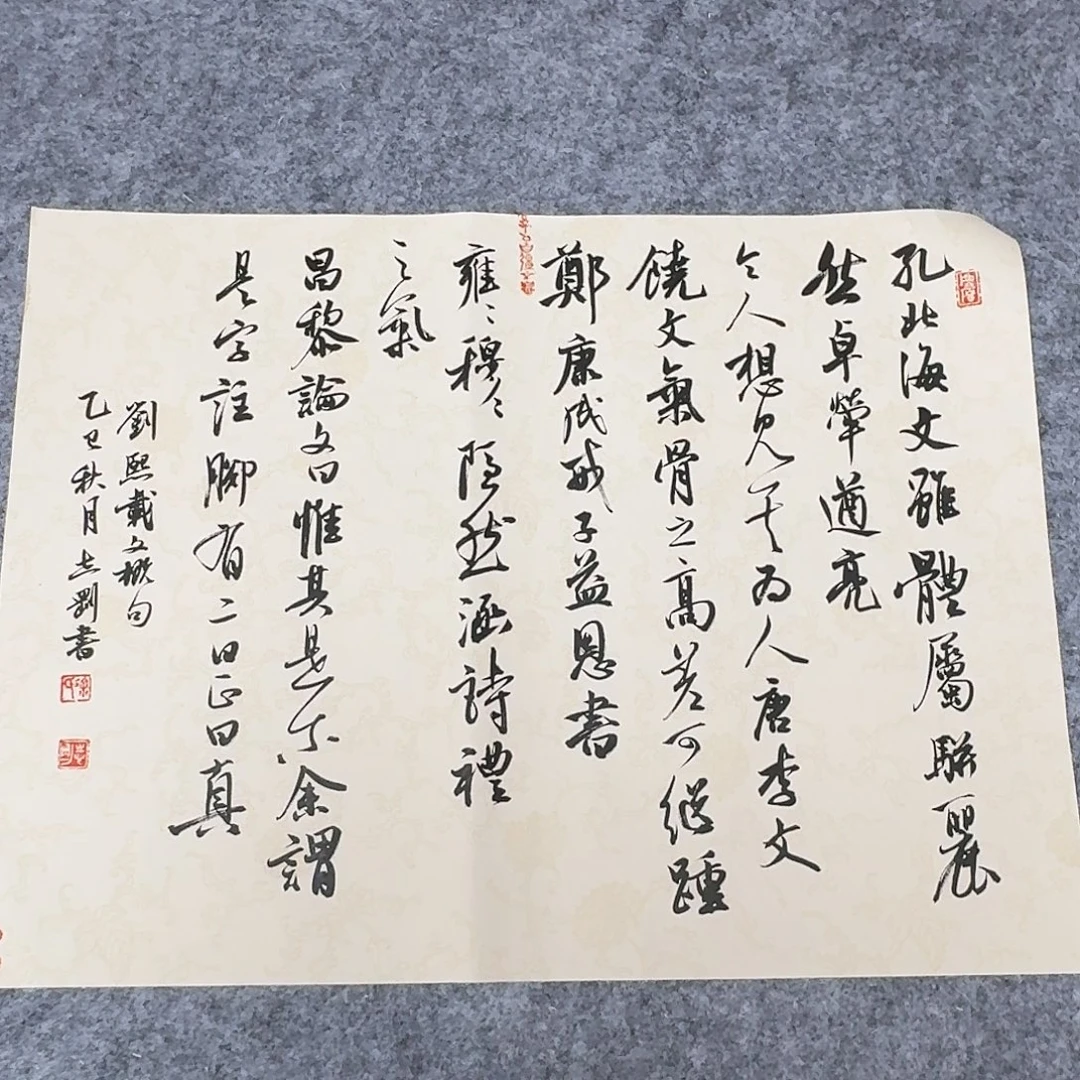 孔北海文雖體屬駢麗
然卓犖遒亮
令人想見其为人唐李文
饒文氣骨之高差可繼踵
鄭康成戒子益恩書
雍〻穆〻隱然涵詩禮
之氣
昌黎論文曰惟其是尔余謂
是字註腳有二曰正曰真
劉熙載文概句
乙巳秋月志剛書